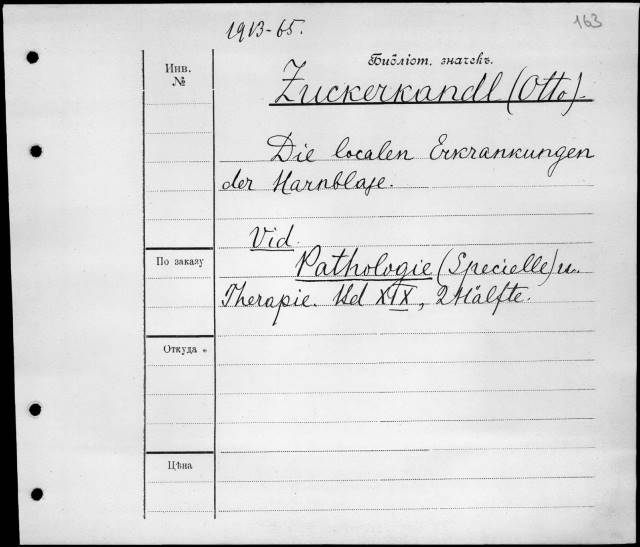 1913-65.
163
Инв.
№
Библіот. значекъ.
Zuckerkandl (Otto)
Die localen Erkrankungen
der Harnblase.
Vid.
По заказу
Pathologie (Specielle) u.
Therapie. Bd XIX, 2 Hälfte.
Откуда
Цѣна